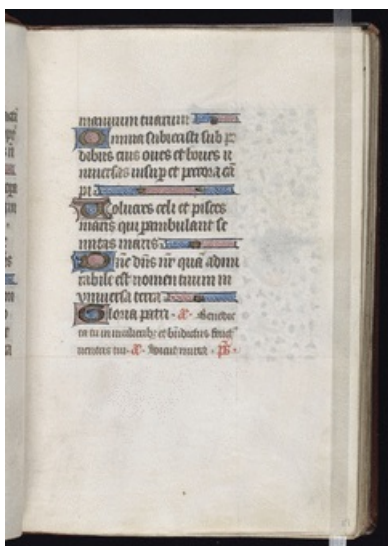 manuum tuarum
Omnia subiecisti sub p
dibus eius oues et boues u
niuersas insup et pecora cā
pi
Uolucres celi et pisces
maris qui pambulant se
mitas maris
Dn̄e dn̄s nr̄ quā admi
rabile est nomen tuum in
vniuersa terra
Gloria patri. a͞. Benedic
ta tu in mulieribꝫ et bn̄dictus fruct
uentris tui. a͞. Sicut mirra. ps̄.